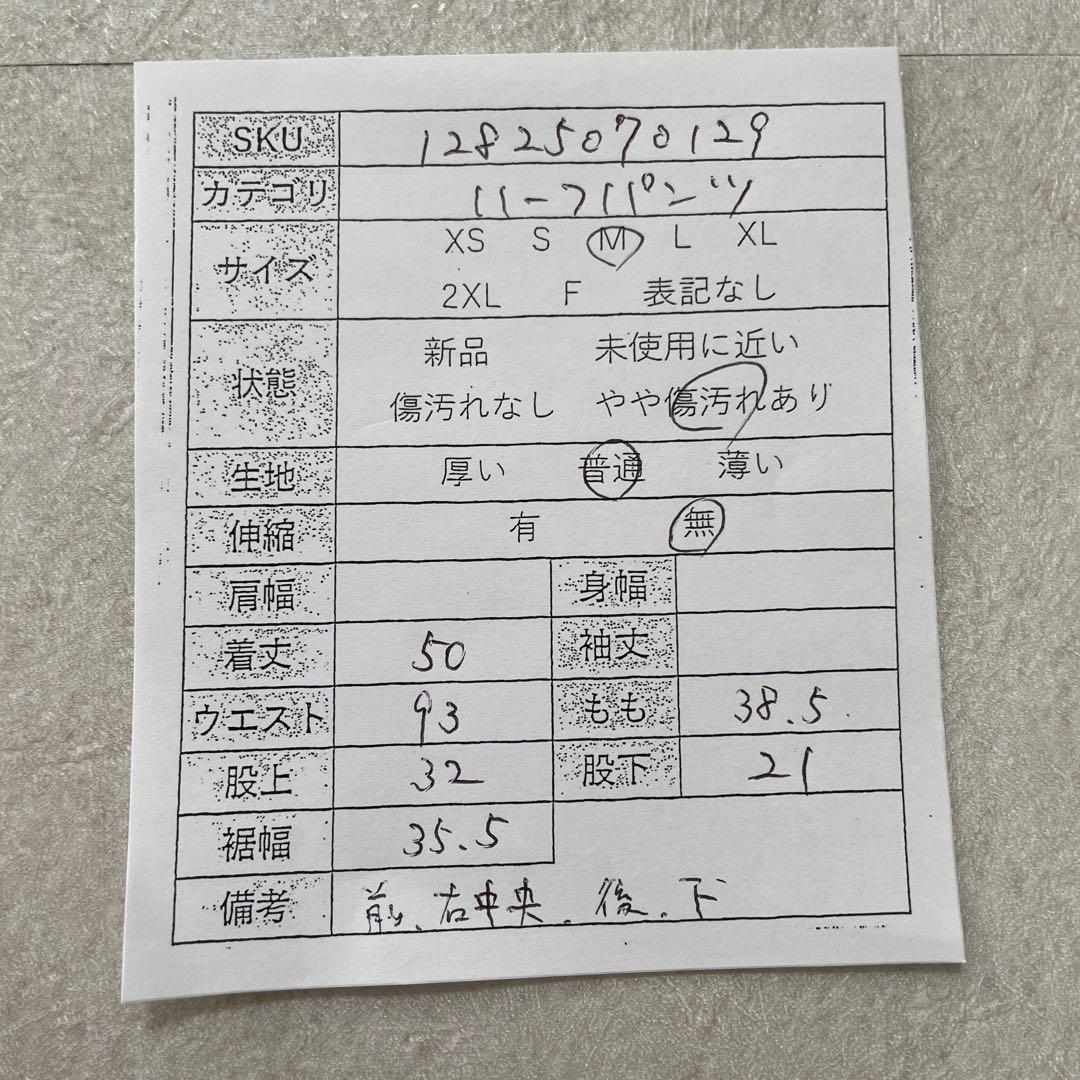 SKU 12825070129
カテゴリ ハーフパンツ
サイズ XS S M L XL
2XL F 表記なし
状態 新品 未使用に近い
傷汚れなし やや傷汚れあり
生地 厚い 普通 薄い
伸縮 有 無
肩幅 身幅
着丈 50 袖丈
ウエスト 93 もも 38.5
股上 32 股下 21
裾幅 35.5
備考 前、右中央、後、下